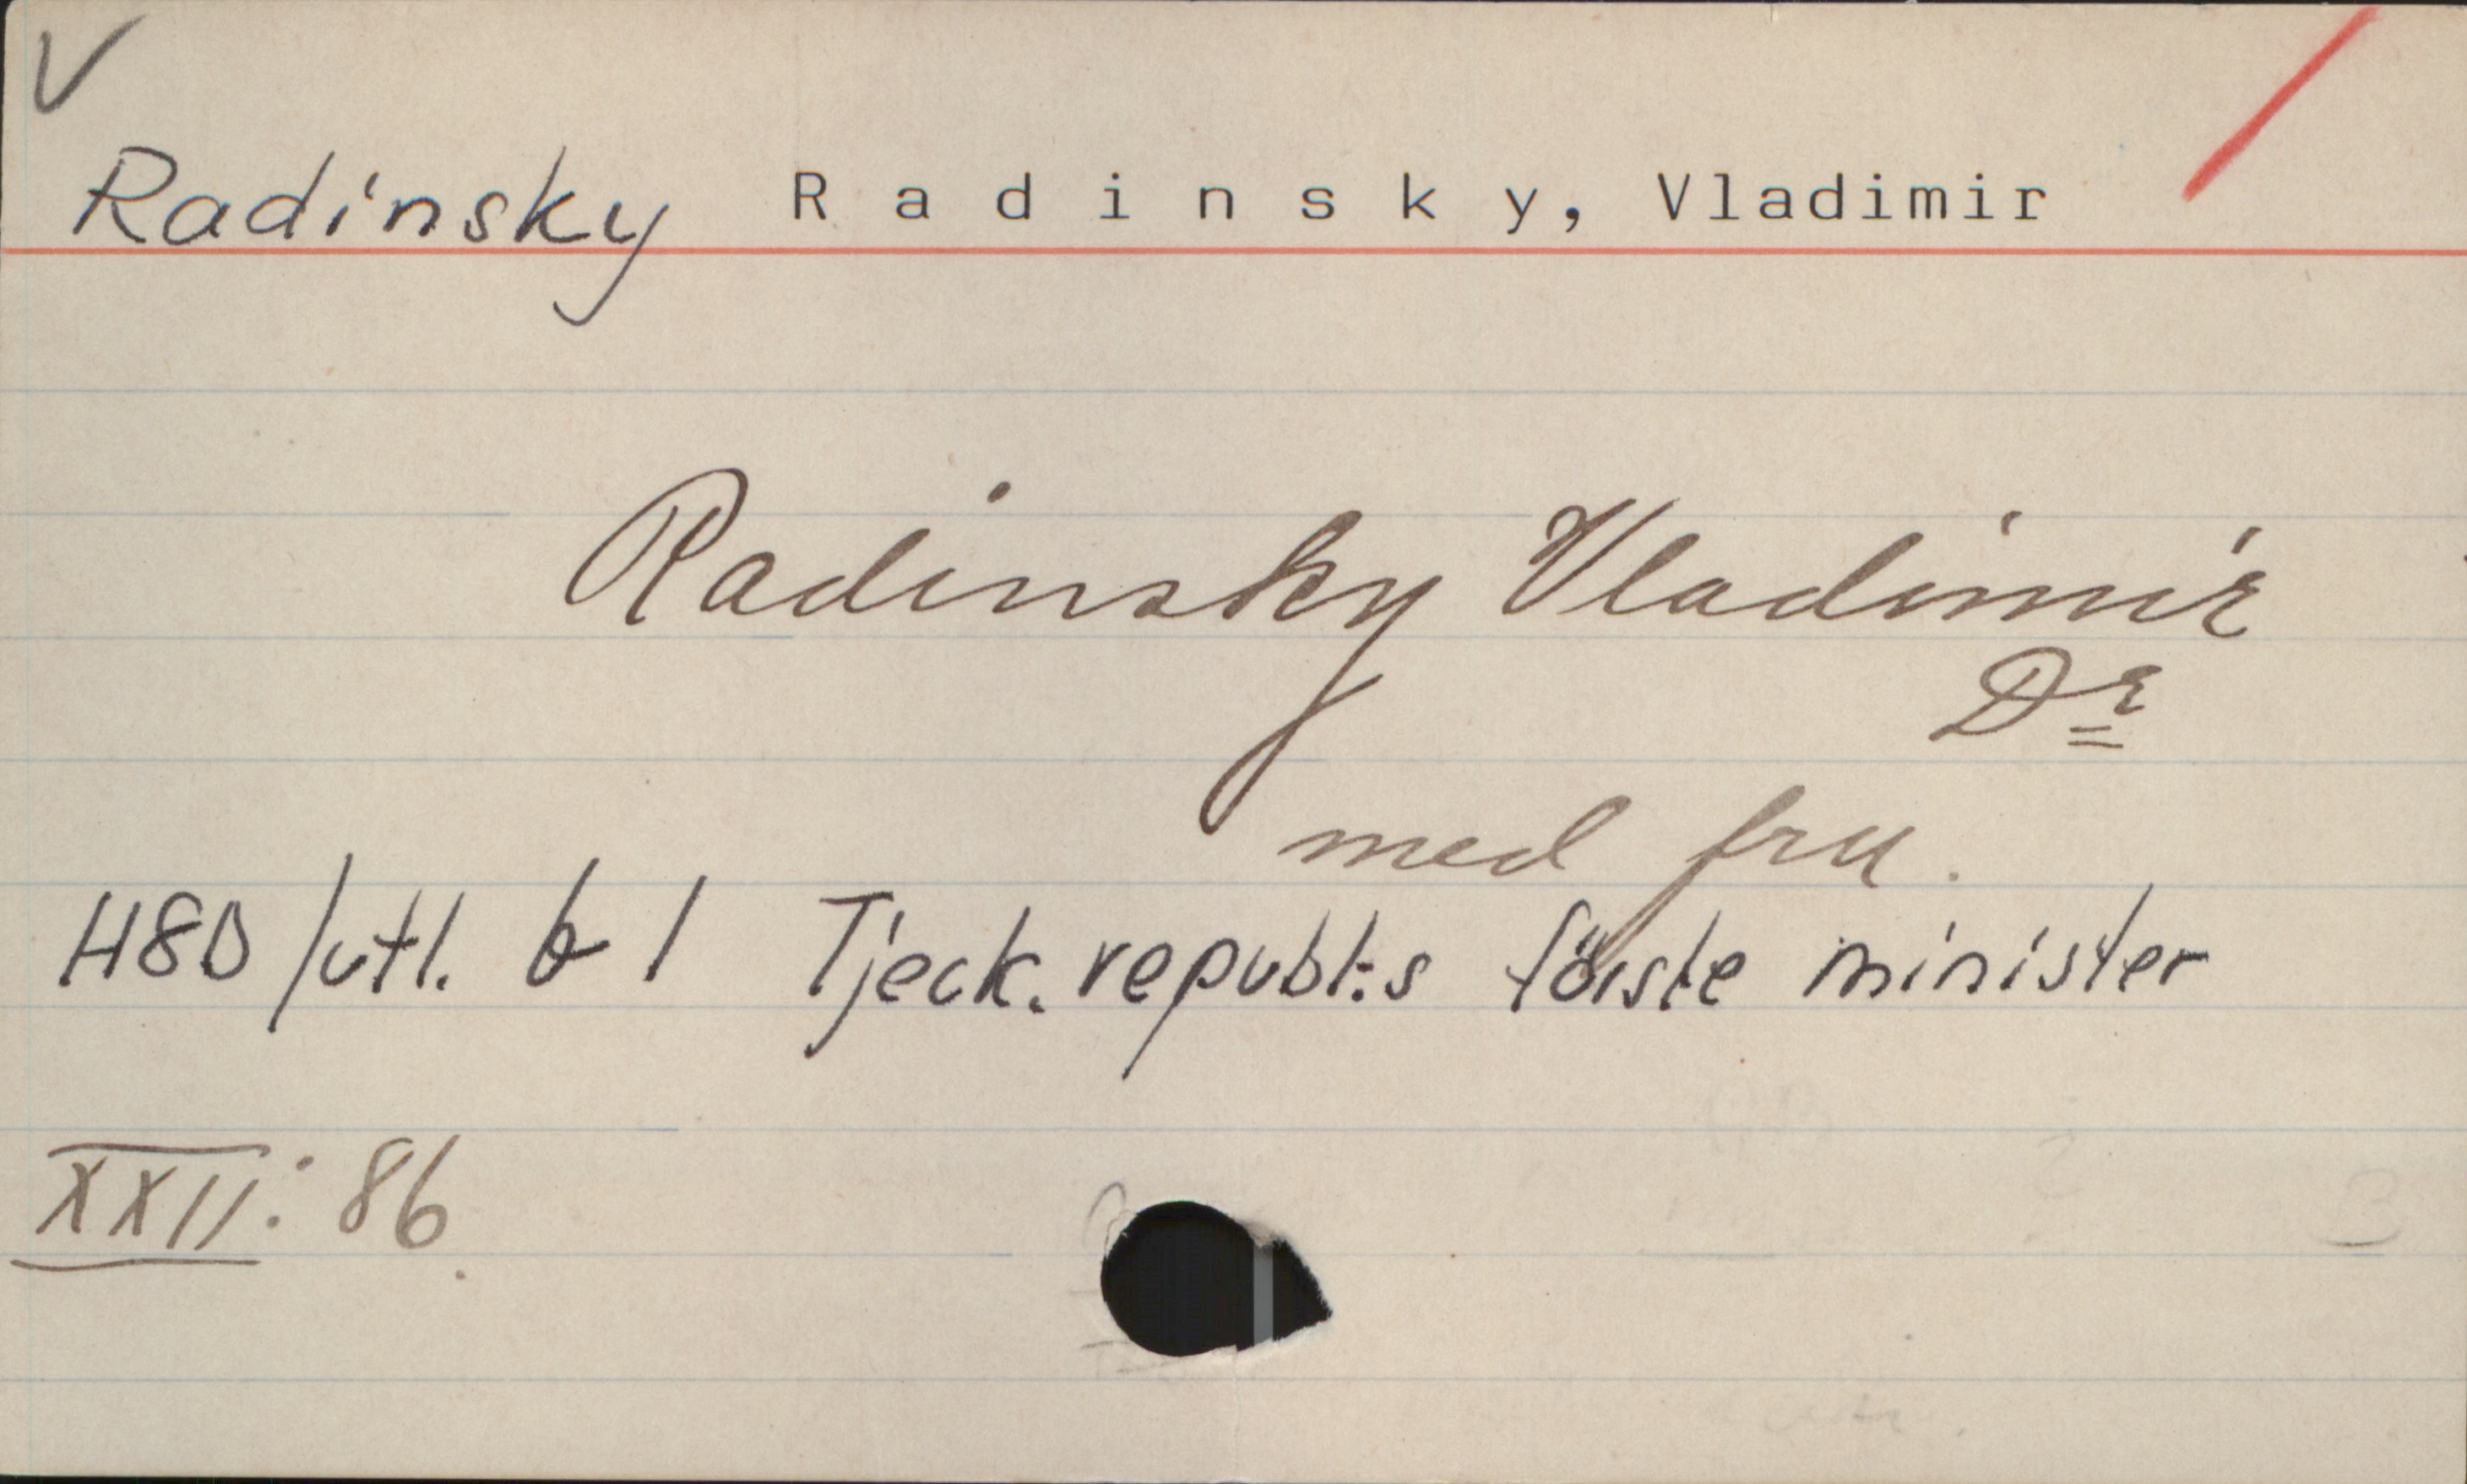 V
Radinsky R a d i n s k y, Vladimir
Radinsky Vladimir
Dr
med fru.
H8D/utl. b 1 Tjeck. republ:s förste minister
XXII: 86